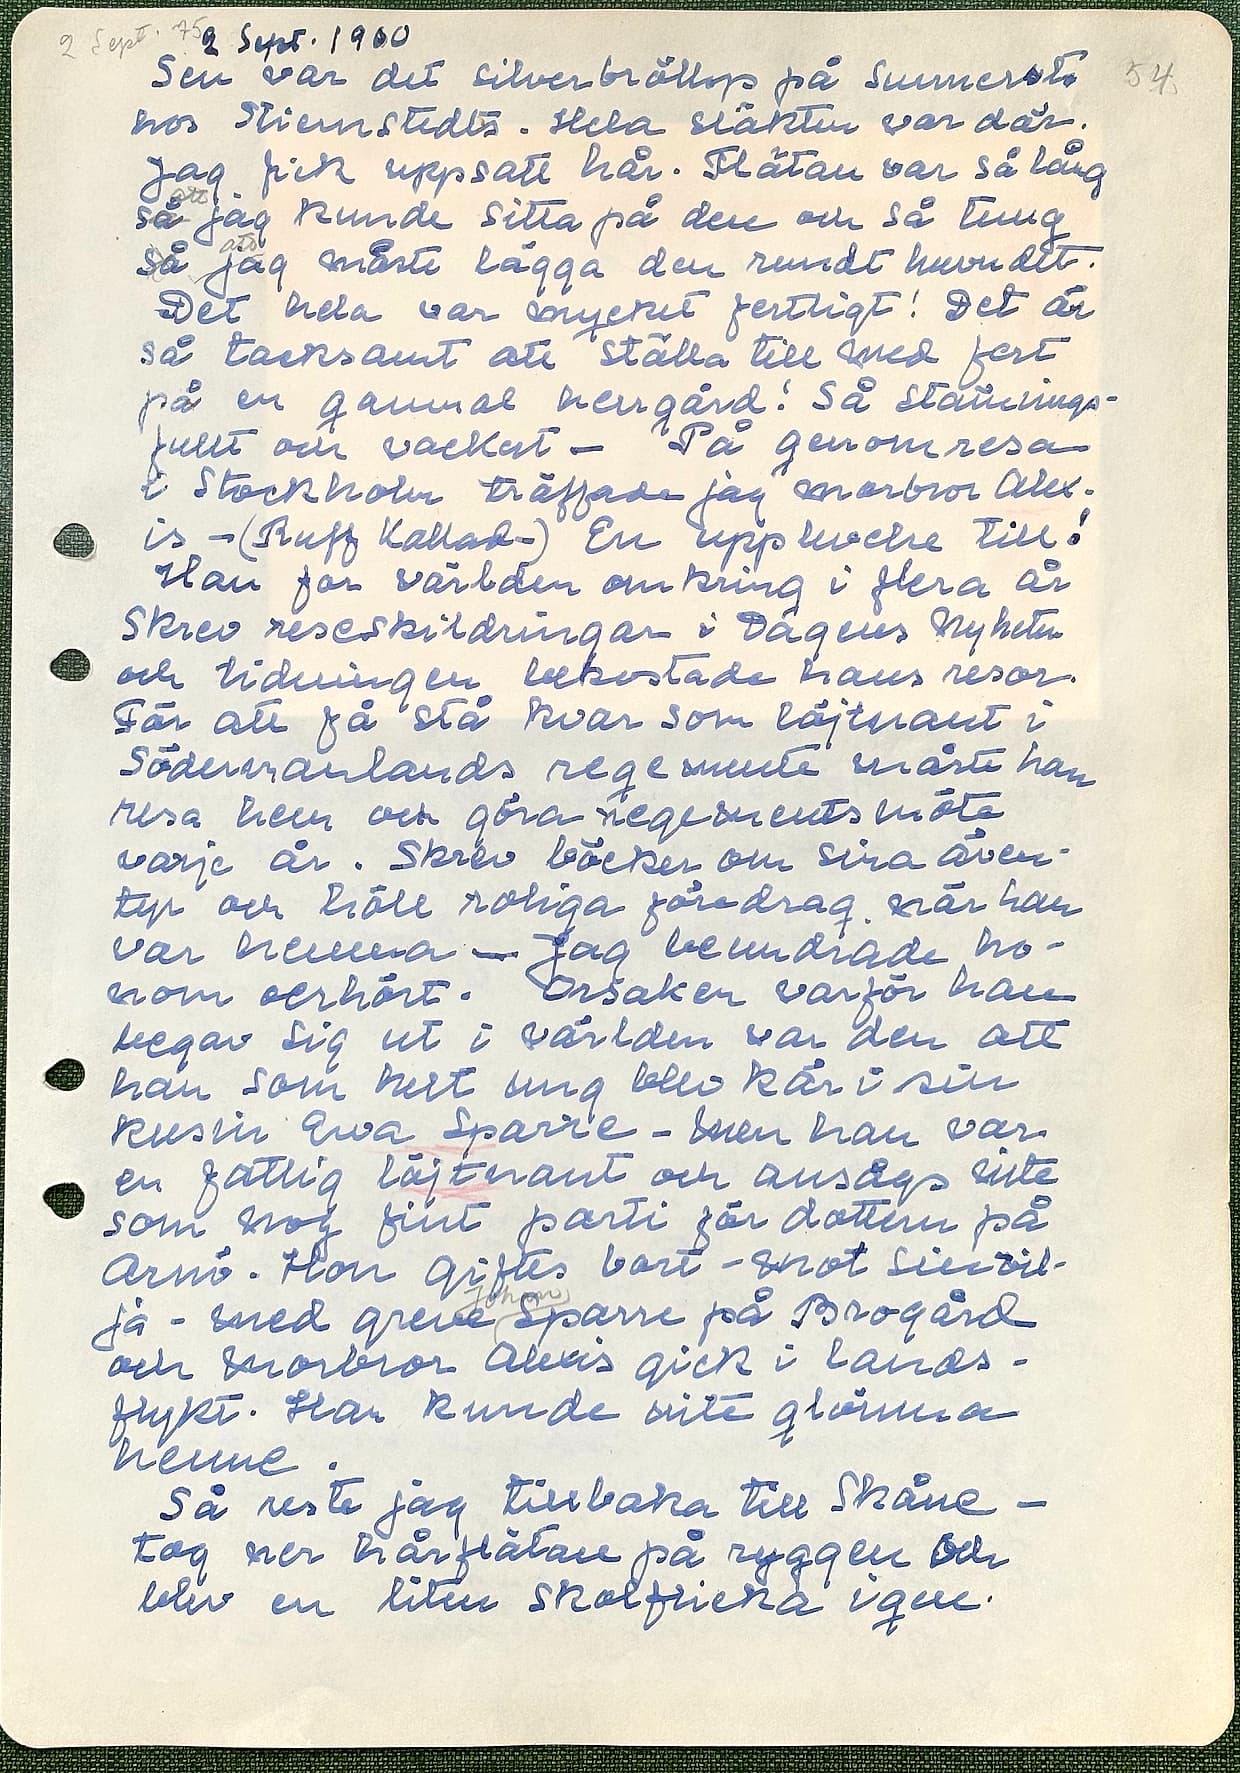 2 Sept. 75 2 Sept. 1900
54
Sen var det silverbröllop på Sunnersta
hos Stiernstedts. Hela släkten var där.
Jag fick uppsatt hår. Flätan var så lång
så att jag kunde sitta på den och så tung
så att jag måste lägga den rundt huvudet.
Det hela var mycket festligt! Det är
så tacksamt att ställa till med fest
på en gammal herrgård! Så stämnings-
fullt och vackert – På genomresa
i Stockholm träffade jag morbror Alex-
is – (Ruff Kallad –) En upplevelse till!
Han for världen omkring i flera år
Skrev reseskildringar i Dagens Nyheter
och tidningen bekostade hans resor.
För att få stå kvar som löjtnant i
Södermanlands regemente måste han
resa hem och göra regementsmöte
varje år. Skrev böcker om sina även-
tyr och höll roliga föredrag när han
var hemma – Jag beundrade ho-
nom oerhört. Orsaken varför han
begav sig ut i världen var den att
han som helt ung blev kär i sin
kusin Ewa Sparre – men han var
en fattig löjtnant och ansågs inte
som nog fint parti för dottern på
Arnö. Hon giftes bort – mot sin vil-
ja – med greve Johan Sparre på Brogård
och morbror Alexis gick i lands-
flykt. Han kunde inte glömma
henne.
Så reste jag tillbaka till Skåne –
tog ner hårflätan på ryggen och
blev en liten skolflicka igen.